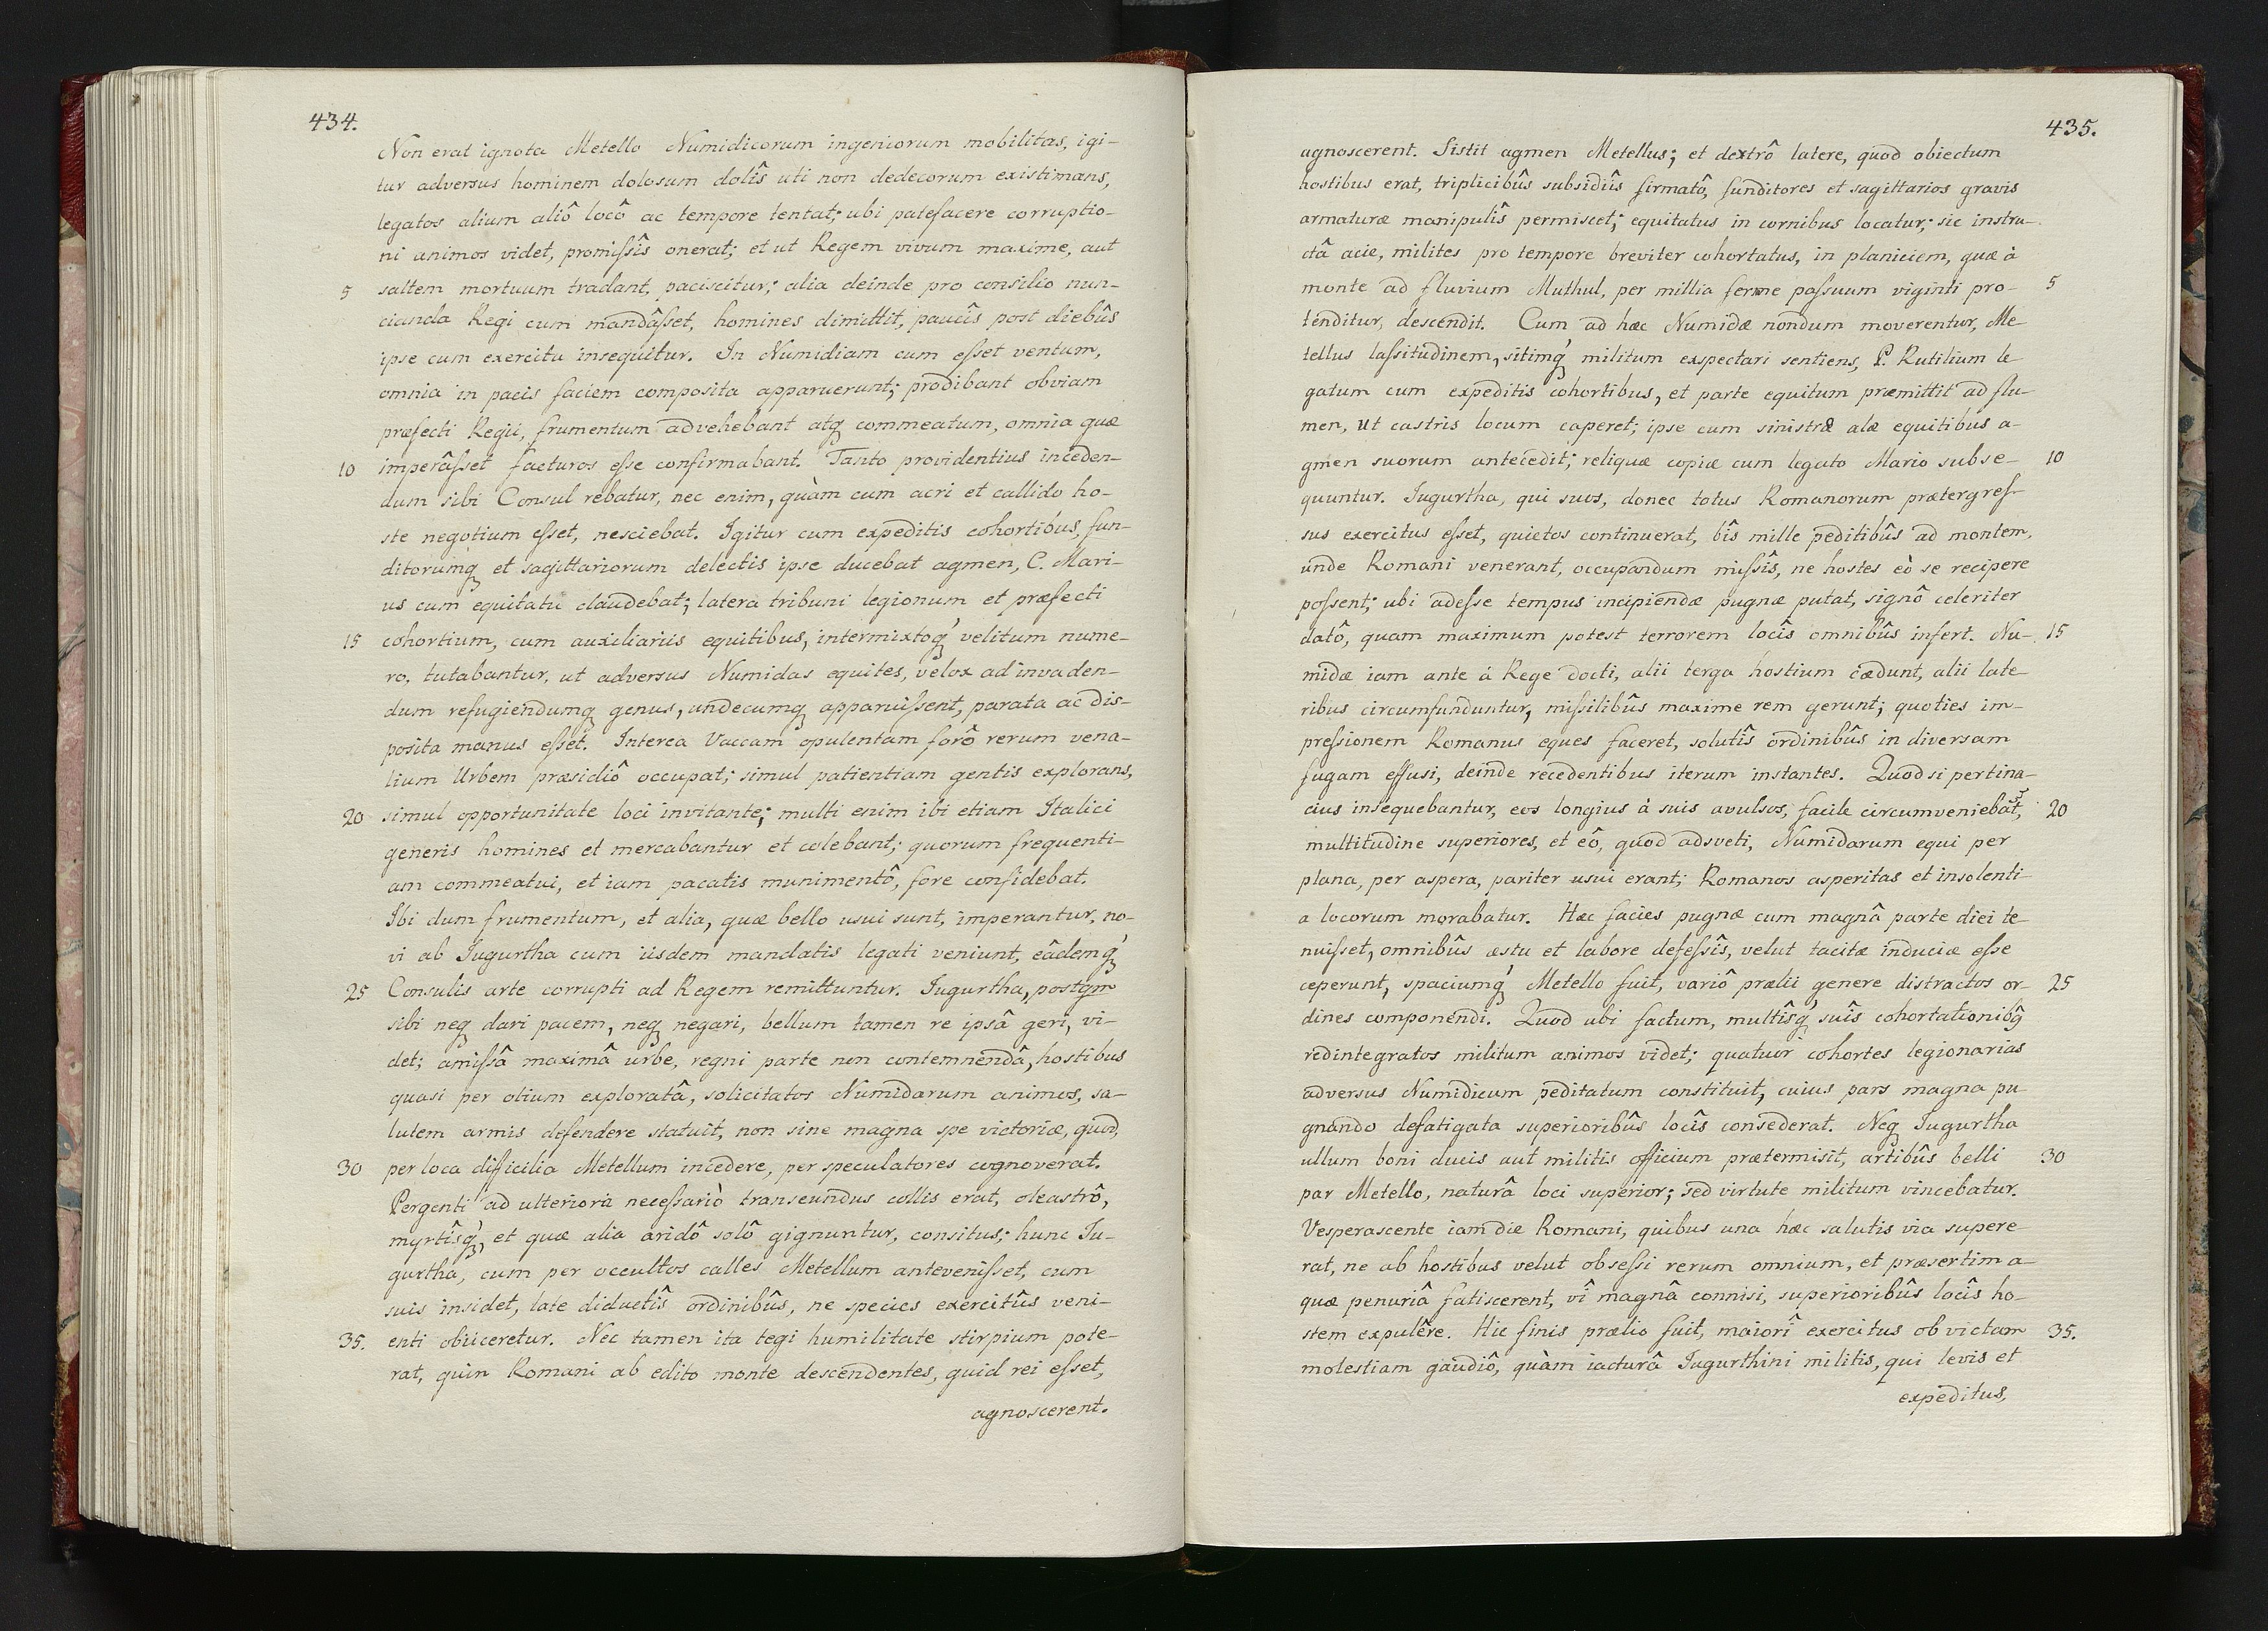 434.
Non erat ignota Metello Numidicorum ingeniorum mobilitas, igi-
tur adversus hominem dolosum dolîs uti non dedecorum existimans,
legatos alium aliô locô ac tempore tentat; ubi patefacere corruptio-
ni animos videt, promiſsîs onerat; et ut Regem vivum maxime, aut
5 saltem mortuum tradant, paciscitur; alia deinde pro consilio nun-
cianda Regi cum mandâſset, homines dimittit, paucîs post diebûs
ipse cum exercitu insequitur. In Numidiam cum eſset ventum,
omnia in pacis faciem composita apparuerunt; prodibant obviam
præfecti Regii, frumentum advehebant atq commeatum, omnia quæ
10 imperâſset facturos eſse confirmabant. Tanto providentius inceden-
dum sibi Consul rebatur, nec enim, quàm cum acri et callido ho-
ste negotium eſset, nesciebat. Igitur cum expeditis cohortibus, fun-
ditorumq et sagittariorum delectis ipse ducebat agmen, C. Mari-
us cum equitatu claudebat; latera tribuni legionum et præfecti
15 cohortium, cum auxiliariis equitibus, intermixtoq́ velitum nume-
ro, tutabantur, ut adversus Numidas equites, velox ad invaden-
dum refugiendumq genus, undecumq apparuiſsent, parata ac dis-
posita manus eſset. Interea Vaccam opulentam forô rerum vena-
lium Urbem præsidiô occupat; simul patientiam gentis explorans,
20 simul opportunitate loci invitante; multi enim ibi etiam Italici
generis homines et mercabantur et colebant; quorum frequenti-
am commeatui, et iam pacatis munimentô, fore confidebat.
Ibi dum frumentum, et alia, quæ bello usui sunt, imperantur, no-
vi ab Iugurtha cum iisdem mandatis legati veniunt, eâdemq́
25 Consulis arte corrupti ad Regem remittuntur. Iugurtha, postqm
sibi neq dari pacem, neq negari, bellum tamen re ipsâ geri, vi-
det; amiſsâ maximâ urbe, regni parte non contemnendâ, hostibus
quasi per otium exploratâ, solicitatos Numidarum animos, sa-
lutem armis defendere statuit, non sine magna spe victoriæ, quod,
30 per loca difficilia Metellum incedere, per speculatores cognoverat.
Pergenti ad ulteriora neceſsariò transeundus collis erat, oleastrô,
myrtîsq́, et quæ alia aridô solô gignuntur, consitus; hunc Iu-
gurtha, cum per occultos calles Metellum anteveniſset, cum
suis insidet, late diductîs ordinibûs, ne species exercitûs veni-
35. enti obiiceretur. Nec tamen ita tegi humilitate stirpium pote-
rat, quin Romani ab edito monte descendentes, quid rei eſset,
agnoscerent.
435.
agnoscerent. Sistit agmen Metellus; et dextrô latere, quod obiectum
hostibus erat, triplicibûs subsidiîs firmatô, funditores et sagittarios gravis
armaturæ manipulîs permiscet; equitatus in cornibus locatur; sic instru-
ctâ acie, milites pro tempore breviter cohortatus, in planiciem, quæ à
monte ad fluvium Muthul, per millia ferme paſsuum viginti pro- 5
tenditur, descendit. Cum ad hæc Numidæ nondum moverentur, Me
tellus laſsitudinem, sitimq́ militum exspectari sentiens, P. Rutilium le
gatum cum expeditis cohortibus, et parte equitum præmittit ad flu-
men, ut castris locum caperet; ipse cum sinistræ alæ equitibus a-
gmen suorum antecedit; reliquæ copiæ cum legato Mario subse- 10
quuntur. Iugurtha, qui suos, donec totus Romanorum prætergreſ-
sus exercitus eſset, quietos continuerat, bîs mille peditibûs ad montem,
unde Romani venerant, occupandum miſsîs, ne hostes eò se recipere
poſsent; ubi adeſse tempus incipiendæ pugnæ putat, signô celeriter
datô, quam maximum potest terrorem locîs omnibûs infert. Nu- 15
midæ iam ante à Rege docti, alii terga hostium cædunt, alii late
ribus circumfunduntur, miſsilibûs maxime rem gerunt; quoties im-
preſsionem Romanus eques faceret, solutîs ordinibûs in diversam
fugam effusi, deinde recedentibus iterum instantes. Quod si pertina-
cius insequebantur, eos longius à suis avulsos, facile circumveniebat, 20
multitudine superiores, et eô, quod adsveti, Numidarum equi per
plana, per aspera, pariter usui erant; Romanos asperitas et insolenti-
a locorum morabatur. Hæc facies pugnæ cum magnâ parte diei te-
nuiſset, omnibûs æstu et labore defeſsîs, velut tacitæ induciæ eſse
ceperunt, spaciumq́ Metello fuit, variô prælii genere distractos or- 25
dines componendi. Quod ubi factum, multîsq́ suîs cohortationibq
redintegratos militum animos videt; quatuor cohortes legionarias
adversus Numidicum peditatum constituit, cuius pars magna pu-
gnando defatigata superioribûs locîs consederat. Neq Iugurtha
ullum boni ducis aut militis officium prætermisit, artibûs belli 30
par Metello, naturâ loci superior; sed virtute militum vincebatur.
Vesperascente iam die Romani, quibus una hæc salutis via supere-
rat, ne ab hostibus velut obseſsi rerum omnium, et præsertim a-
quæ penuriâ fatiscerent, vî magnâ connisi, superioribûs locîs ho-
stem expulêre. Hic finis prælio fuit, maiorî exercitus ob victam 35.
molestiam gaudiô, quàm iacturâ Iugurthini militis, qui levis et
expeditus,